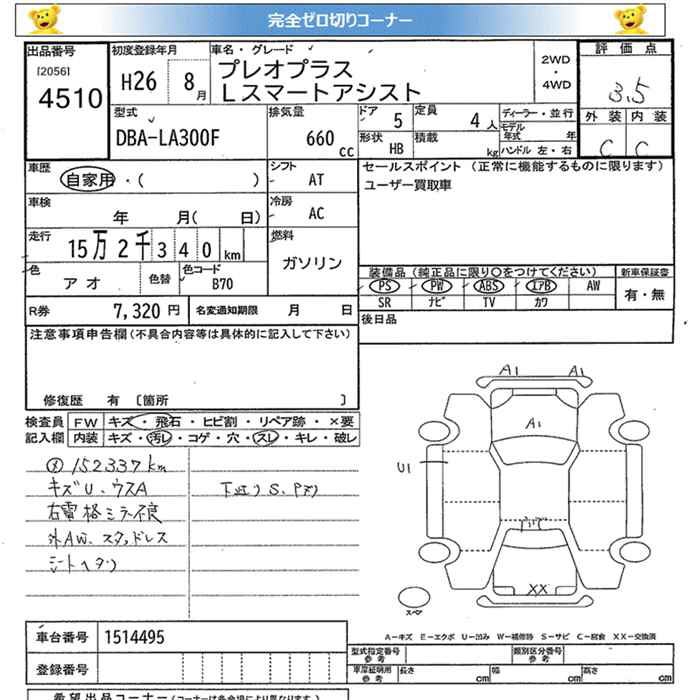 完全ゼロ切りコーナー
出品番号
[2056]
4510
初度登録年月
H26 8月
車名・グレード
プレオプラス
Lスマートアシスト
2WD
・
4WD
評価点
3.5
外装 内装
C C
型式
DBA-LA300F
排気量
660 cc
ドア 5
定員 4人
形状 HB
積載 kg
ディーラー・並行
モデル年式 年
ハンドル 左・右
車歴
自家用・( )
シフト AT
車検
年 月( 日)
冷房 AC
走行
15万2千340km
燃料
ガソリン
色
アオ
色替
色コード
B70
セールスポイント (正常に機能するものに限ります)
ユーザー買取車
装備品(純正品に限り○をつけてください)
PS PW ABS エアB AW
SR ナビ TV カワ
新車保証書
有・無
R券 7,320円
名変通知期限 月 日
後日品
注意事項申告欄(不具合内容等は具体的に記入して下さい)
修復歴 有 [箇所 ]
検査員記入欄
FW キズ・飛石・ヒビ割・リペア跡・×要
内装 キズ・汚レ・コゲ・穴・スレ・キレ・破レ
152337km
キズU、ウスA
右電格ミラー不良
外AW、スタッドレス
シートヘタリ
下廻りS、
A1 A1
A1
U1
XX
スペア
A-キズ E-エクボ U-凹み W-補修跡 S-サビ C-腐食 XX-交換済
車台番号 1514495
登録番号
型式指定番号
参考
類別区分番号
参考
車庫証明用
参考
長さ cm 幅 cm 高さ cm
希望出品コーナー(コーナーは各会場により異なります)